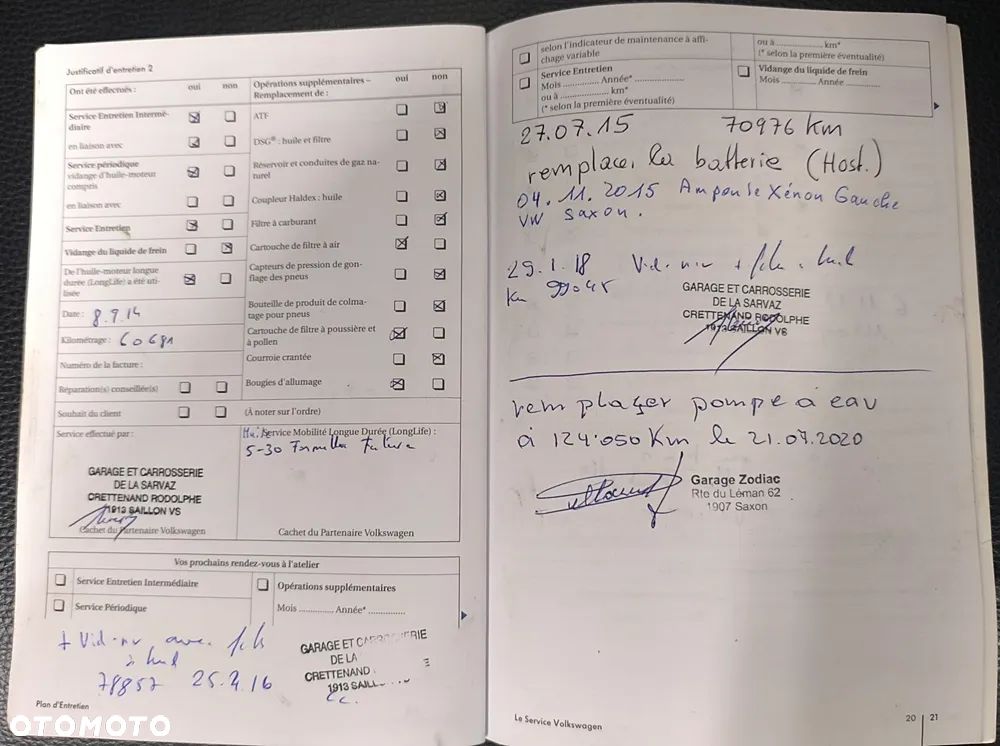 Justificatif d'entretien 2
Ont été effectués : oui non
Service Entretien Intermé-
diaire
en liaison avec
Service périodique
vidange d'huile-moteur
compris
en liaison avec
Service Entretien
Vidange du liquide de frein
De l'huile-moteur longue
durée (LongLife) a été uti-
lisée
Date : 8.9.14
Kilométrage : 60681
Numéro de la facture :
Réparation(s) conseillée(s)
Souhait du client
(À noter sur l'ordre)
Opérations supplémentaires – oui non
Remplacement de :
ATF
DSG® : huile et filtre
Réservoir et conduites de gaz na-
turel
Coupleur Haldex : huile
Filtre à carburant
Cartouche de filtre à air
Capteurs de pression de gon-
flage des pneus
Bouteille de produit de colma-
tage pour pneus
Cartouche de filtre à poussière et
à pollen
Courroie crantée
Bougies d'allumage
Service effectué par :
GARAGE ET CARROSSERIE
DE LA SARVAZ
CRETTENAND RODOLPHE
1913 SAILLON VS
Cachet du Partenaire Volkswagen
Service Mobilité Longue Durée (LongLife) :
5-30
Cachet du Partenaire Volkswagen
Vos prochains rendez-vous à l'atelier
Service Entretien Intermédiaire
Service Périodique
Opérations supplémentaires
Mois .............. Année* ...............
78857 25.4.16
GARAGE ET
DE LA
CRETTENAND
1913
Plan d'Entretien
OTOMOTO
selon l'indicateur de maintenance à affi-
chage variable
Service Entretien
Mois .............. Année* ...............
ou à .................... km*
(* selon la première éventualité)
ou à .................... km*
(* selon la première éventualité)
Vidange du liquide de frein
Mois .............. Année ...............
27.07.15 70976 KM
remplacer la batterie (Host.)
04.11.2015 Ampoule Xénon Gauche
VW Saxon.
29.1.18
Km 99045
GARAGE ET CARROSSERIE
DE LA SARVAZ
CRETTENAND RODOLPHE
1913 SAILLON VS
remplaçer pompe à eau
à 124'050 Km le 21.07.2020
Garage Zodiac
Rte du Léman 62
1907 Saxon
Le Service Volkswagen
20 21